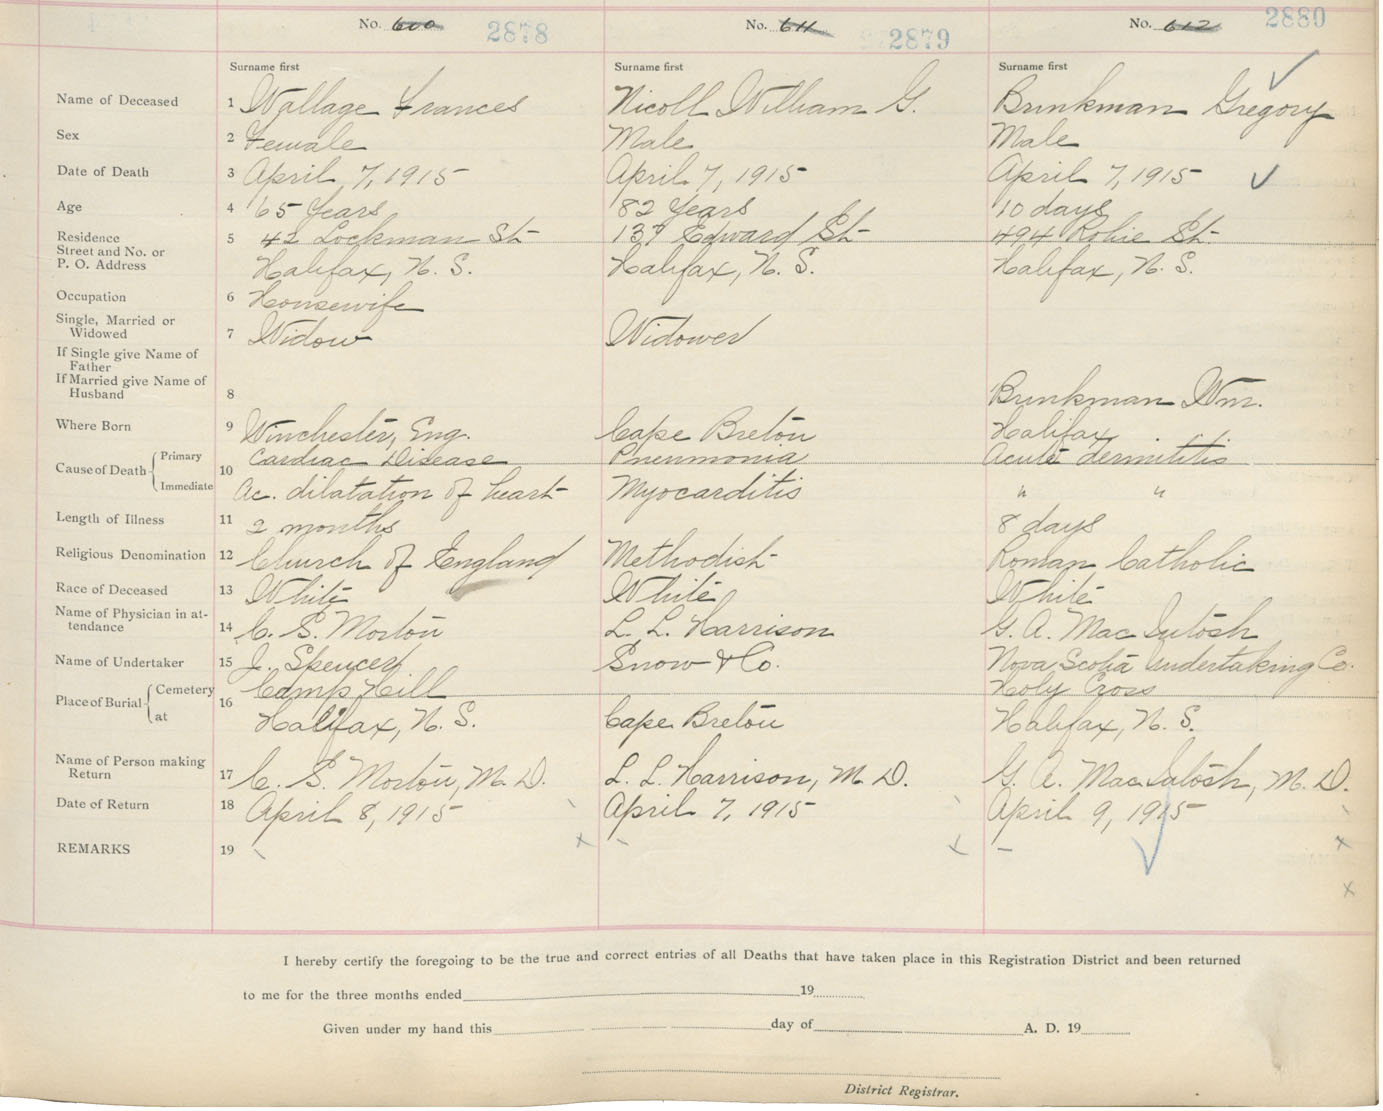 No. 600 2878 No. 611 2879 No. 612 2880
Surname first Surname first Surname first
Name of Deceased 1 Wallage Frances Nicoll William G. Brinkman Gregory
Sex 2 Female Male Male
Date of Death 3 April 7, 1915 April 7, 1915 April 7, 1915
Age 4 65 Years 82 Years 10 days
Residence 5 42 Lockman St 137 Edward St 494 Robie St.
Street and No. or
P. O. Address Halifax, N. S. Halifax, N. S. Halifax, N. S.
Occupation 6 Housewife
Single, Married or
Widowed 7 Widow Widower
If Single give Name of
Father
If Married give Name of
Husband 8 Brinkman Wm.
Where Born 9 Winchester, Eng. Cape Breton Halifax
Cause of Death Primary 10 Cardiac Disease Pneumonia Acute dermititis
Immediate Ac. dilatation of heart Myocarditis " "
Length of Illness 11 2 months 8 days
Religious Denomination 12 Church of England Methodist Roman Catholic
Race of Deceased 13 White White White
Name of Physician in at-
tendance 14 C. S. Morton L. L. Harrison G. A. MacIntosh
Name of Undertaker 15 J. Spencer Snow & Co. Nova Scotia Undertaking Co.
Place of Burial Cemetery 16 Camp Hill Holy Cross
at Halifax, N. S. Cape Breton Halifax, N. S.
Name of Person making
Return 17 C. S. Morton, M. D. L. L. Harrison, M. D. G. A. MacIntosh, M. D.
Date of Return 18 April 8, 1915 April 7, 1915 April 9, 1915
REMARKS 19
I hereby certify the foregoing to be the true and correct entries of all Deaths that have taken place in this Registration District and been returned
to me for the three months ended 19
Given under my hand this day of A. D. 19
District Registrar.